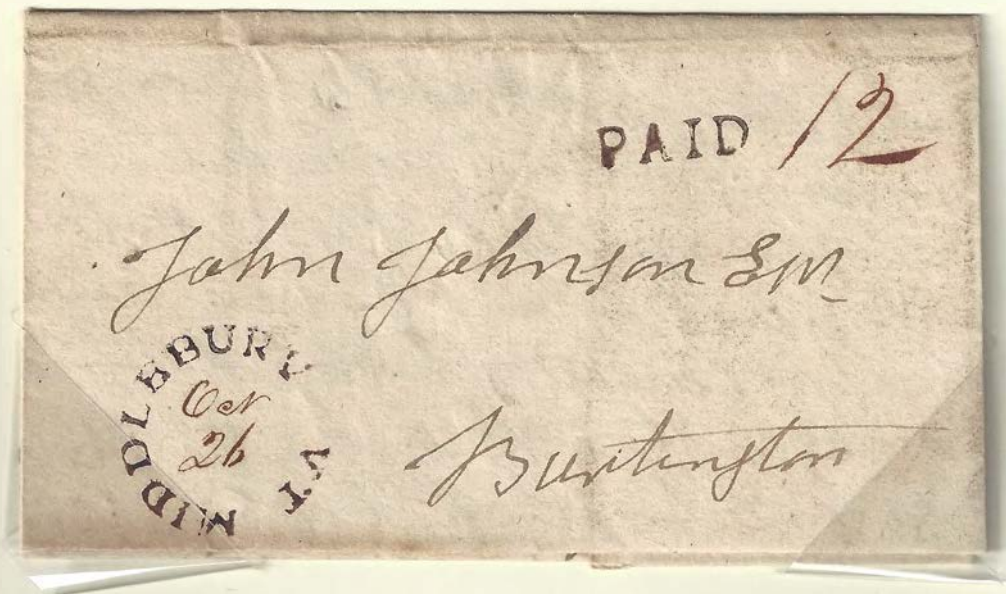 PAID 12
John Johnson Esqr
MIDDLEBURY VT
Oct
26
Burlington